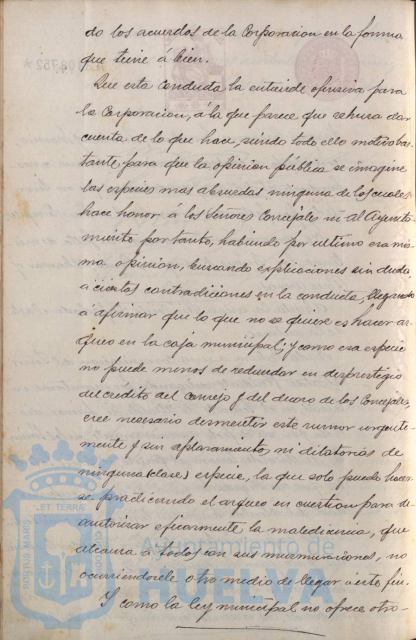 do los acuerdos de la Corporacion en la forma
que tiene á bien.
Que esta conducta la entiende ofensiva para
la Corporacion, á la que parece que rehusa dar
cuenta de lo que hace, siendo todo ello motivo bas-
tante, para que la opinion pública se imagine
las especies mas absurdas ninguna de los cuales
hace honor á los Señores Concejales ni al Ayunta-
miento por tanto, habiendo por ultimo esa mis-
ma opinion, buscando esplicaciones sin duda
a ciertas contradiciones en la conducta, llegando
á afirmar que lo que no se quiere es hacer ar-
queo en la caja municipal; y como esa especie
no puede menos de redundar en desprestigio
del credito del Consejo y del decoro de los Concejales,
cree necesario desmentir este rumor urgente-
mente y sin aplazamiento, ni dilatorias de
ninguna (clase) especie, lo que solo puede hacer-
se practicando el arqueo en cuestion para des-
autorizar eficazmente la maledicencia, que
alcanza á todos con sus murmuraciones, no
ocurriendosele otro medio de llegar a este fin.
Y como la ley municipal no ofrece otro-
PORTUS MARIS ET TERRAE
Ayuntamiento de
HUELVA